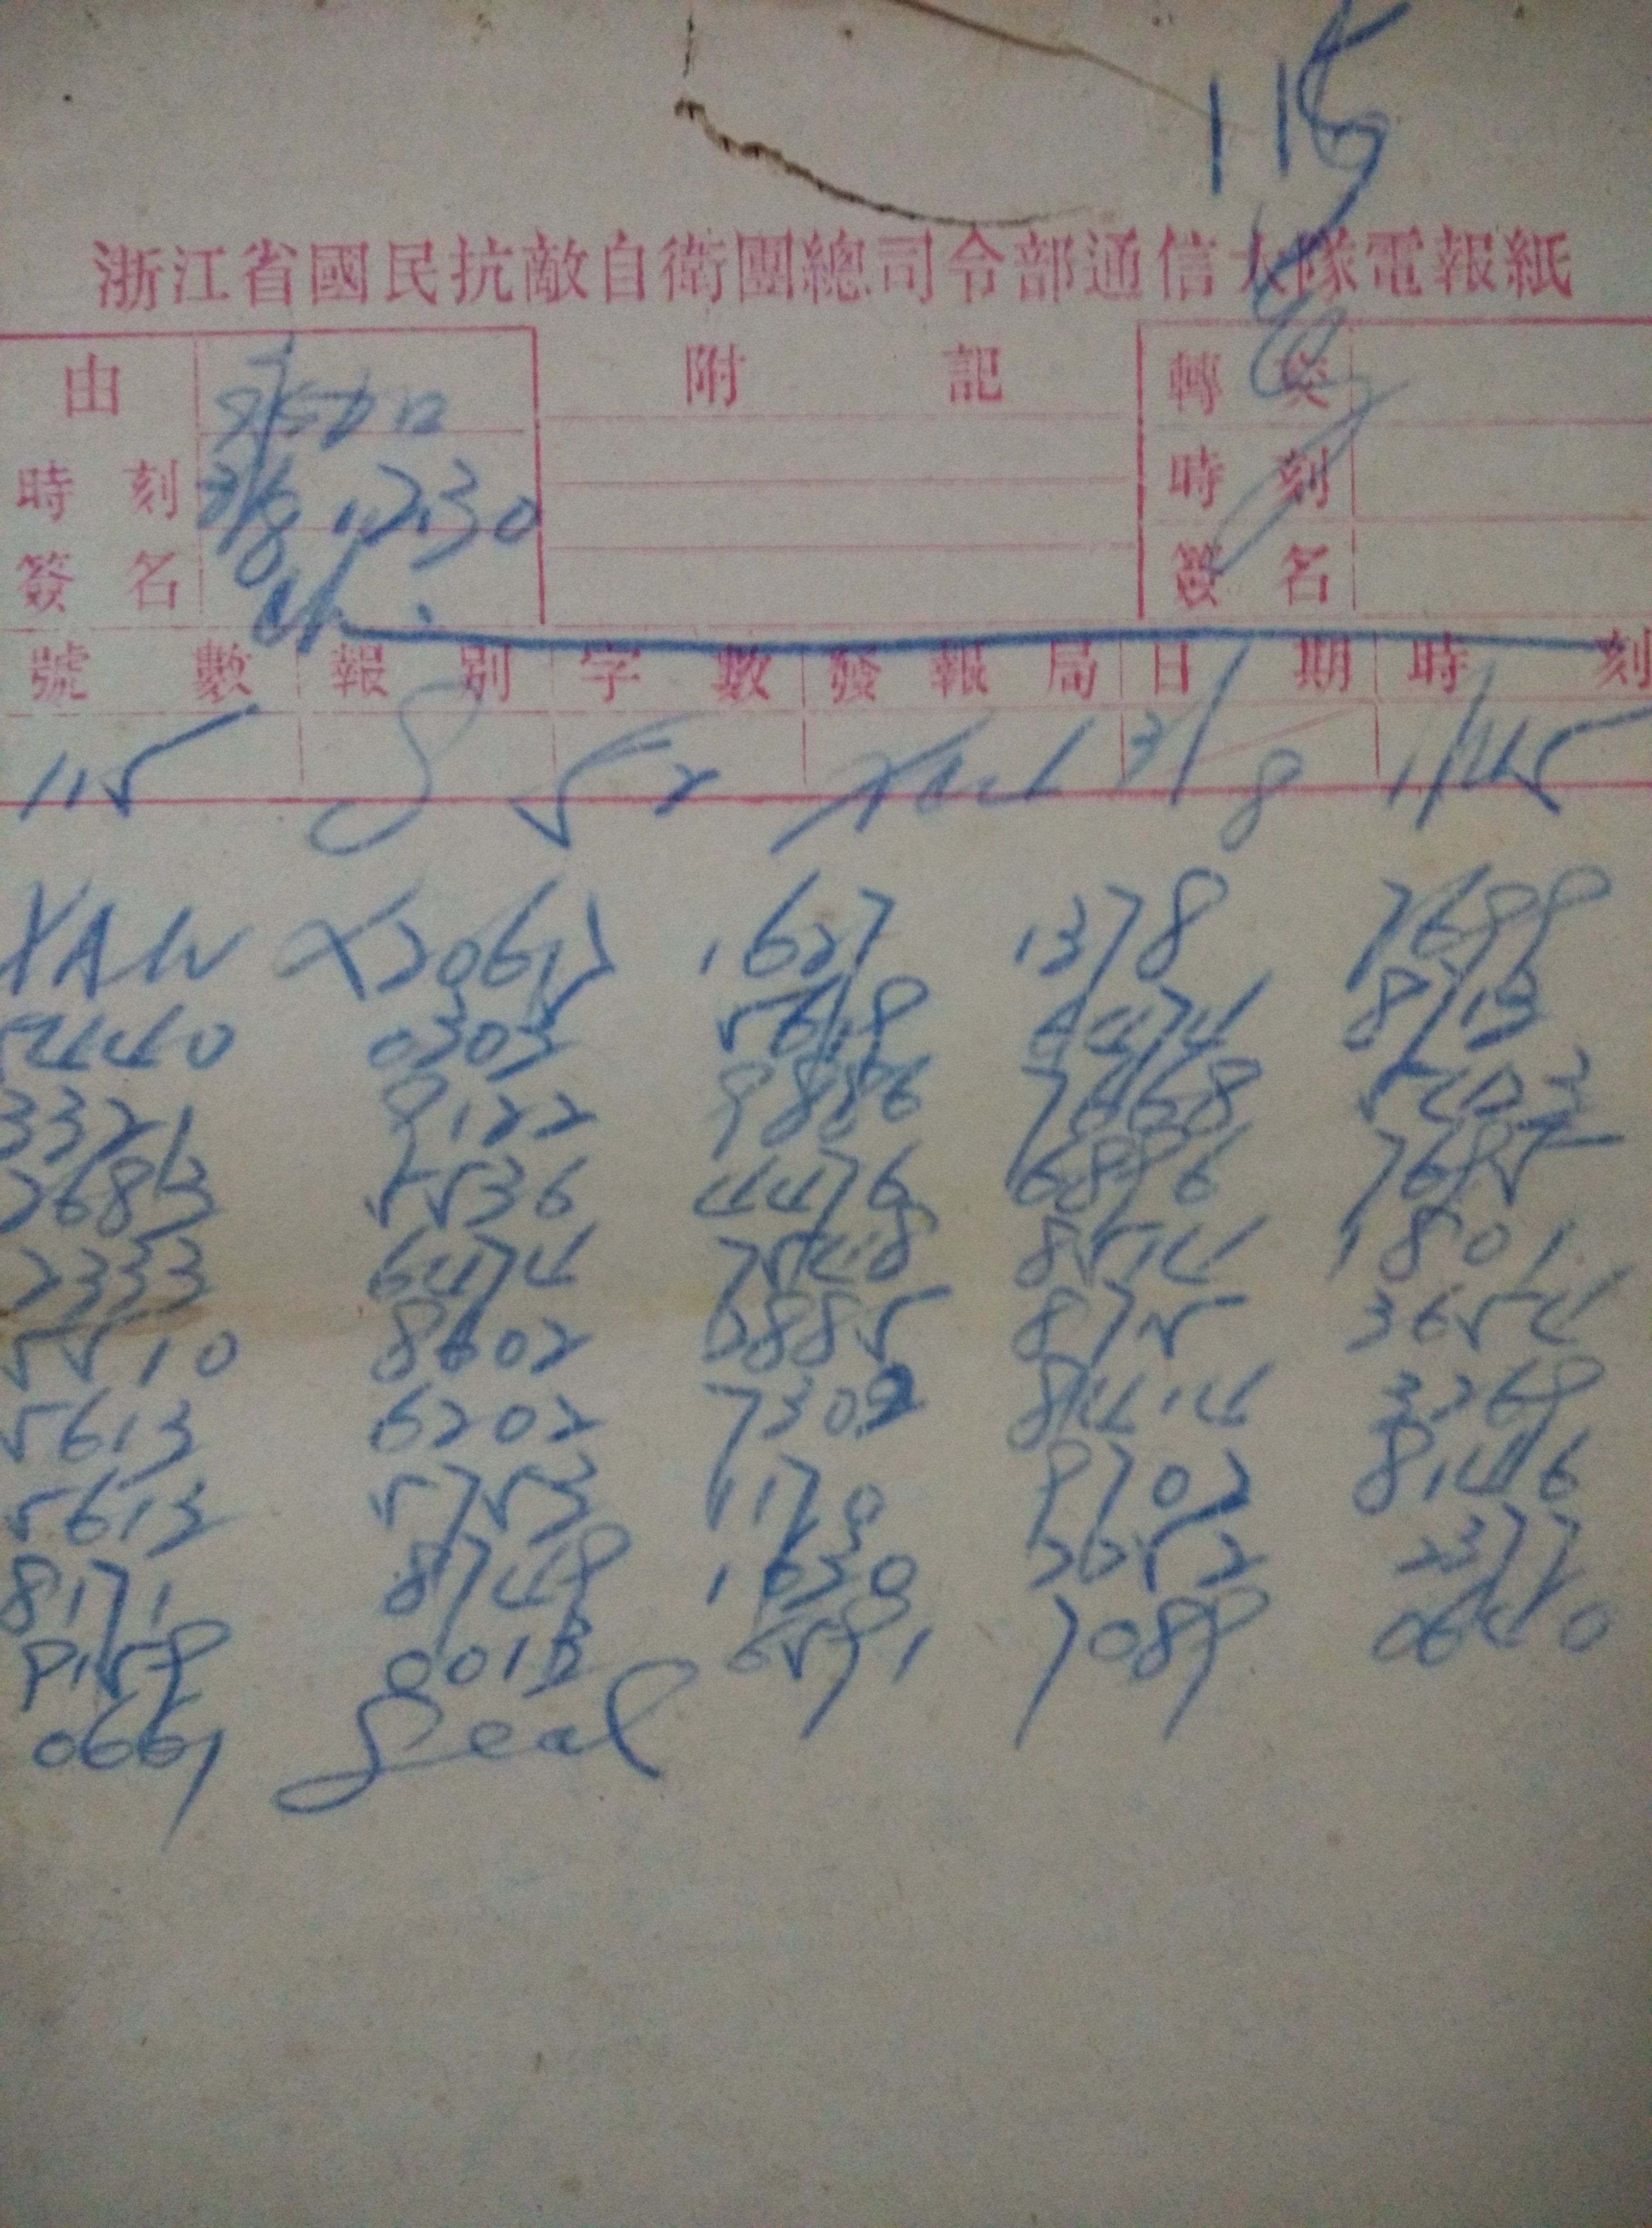 115
浙江省國民抗敵自衛團總司令部通信大隊電報紙
由 附 記 轉 與
時 刻 31/8 12.30 時 刻
簽 名 簽 名
號 數 報 別 字 數 發 報 局 日 期 時 刻
115 S 52 31/8 1145
1627 1378 7699
5440 0303 5618 6474 8713
3321 9122 9886 7668
2683 5536 4476 6896 7695
2333 6474 7548 8574 1801
5510 8602 2885 875 3654
5613 6202 7309 8414 3269
5613 5753 1170 9702 8146
8171 8749 1630 2652 2377
9159 0013 6591 7089 0640
0661 Seal